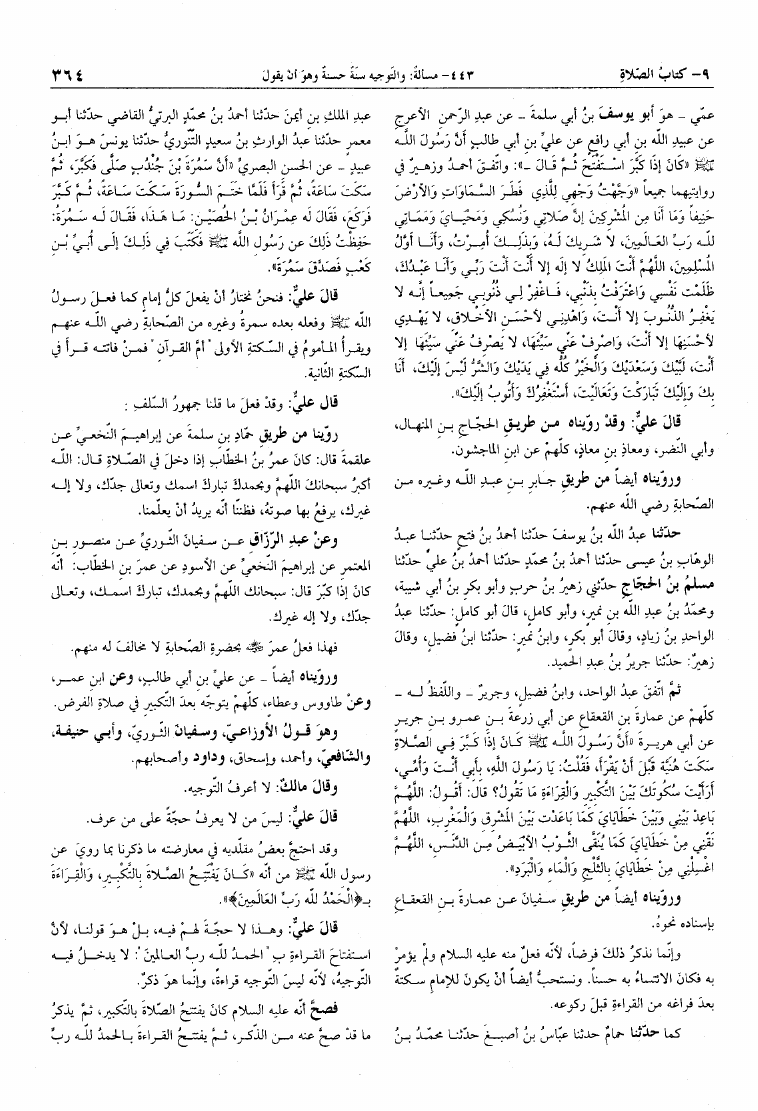 ٩- كتابُ الصّلاةِ
٤٤٣- مسألةٌ: والتّوجيه سنّةٌ حسنةٌ وهوَ أنْ يقولَ
٣٦٤
عمّي - هوَ أبو يوسفَ بنُ أبي سلمةَ - عن عبدِ الرّحمنِ الأعرجِ
عن عبيدِ الله بنِ أبي رافعٍ عن عليِّ بنِ أبي طالبٍ أنَّ رَسُولَ اللَّه
ﷺ «كَانَ إذَا كَبَّرَ اسْتَفْتَحَ ثُمَّ قَالَ -»: واتّفقَ أحمدُ وزهيرٌ في
روايتِهما جميعاً «وَجَّهْتُ وَجْهِي لِلَّذِي فَطَرَ السَّمَاوَاتِ وَالأَرْضَ
حَنِيفاً وَمَا أَنَا مِن المُشْرِكِينَ إنَّ صَلاتِي وَنُسُكِي وَمَحْيَايَ وَمَمَاتِي
للَّه رَبِّ العَالَمِينَ، لا شَرِيكَ لَهُ، وَبِذَلِكَ أُمِرْتُ، وَأَنَا أَوَّلُ
المُسْلِمِينَ، اللَّهُمَّ أَنْتَ المَلِكُ لا إلَه إلا أَنْتَ أَنْتَ رَبِّي وَأَنَا عَبْدُكَ،
ظَلَمْت نَفْسِي وَاعْتَرَفْتُ بِذَنْبِي، فَاغْفِرْ لِي ذُنُوبِي جَمِيعاً إنَّه لا
يَغْفِرُ الذُّنُوبَ إلا أَنْتَ، وَاهْدِنِي لأَحْسَنِ الأَخْلاقِ، لا يَهْدِي
لأَحْسَنِهَا إلا أَنْتَ، وَاصْرِفْ عَنِّي سَيِّئَهَا، لا يَصْرِفُ عَنِّي سَيِّئَهَا إلا
أَنْتَ، لَبَّيْكَ وَسَعْدَيْكَ وَالخَيْرُ كُلُّه فِي يَدَيْكَ وَالشَّرُّ لَيْسَ إلَيْكَ، أَنَا
بِكَ وَإِلَيْكَ تَبَارَكْتَ وَتَعَالَيْتَ، أَسْتَغْفِرُكَ وَأَتُوبُ إلَيْكَ».
قالَ عليٌّ: وقدْ روّيناه من طريقِ الحجّاجِ بنِ المنهالِ،
وأبي النّضرِ، ومعاذِ بنِ معاذٍ، كلّهمْ عن ابنِ الماجشونِ.
وروّيناه أيضاً من طريقِ جابرِ بنِ عبدِ اللَّه وغيره من
الصّحابةِ رضي اللَّه عنهم.
حدّثنا عبدُ اللَّه بنُ يوسفَ حدّثنا أحمدُ بنُ فتحٍ حدّثنا عبدُ
الوهّابِ بنُ عيسى حدّثنا أحمدُ بنُ محمّدٍ حدّثنا أحمدُ بنُ عليٍّ حدّثنا
مسلمُ بنُ الحجّاجِ حدّثني زهيرُ بنُ حربٍ وأبو بكرِ بنُ أبي شيبةَ،
ومحمّدُ بنُ عبدِ اللَّه بنِ نميرٍ، وأبو كاملٍ، قالَ أبو كاملٍ: حدّثنا عبدُ
الواحدِ بنُ زيادٍ، وقالَ أبو بكرٍ، وابنُ نميرٍ: حدّثنا ابنُ فضيلٍ، وقالَ
زهيرٌ: حدّثنا جريرُ بنُ عبدِ الحميدِ.
ثمَّ اتّفقَ عبدُ الواحدِ، وابنُ فضيلٍ، وجريرٌ - واللّفظُ له -
كلّهمْ عن عمارةَ بنِ القعقاعِ عن أبي زرعةَ بنِ عمرو بنِ جريرٍ
عن أبي هريرةَ «أَنَّ رَسُولَ اللَّه ﷺ كَانَ إذَا كَبَّرَ فِي الصَّلاةِ
سَكَتَ هُنَيَّةً قَبْلَ أَنْ يَقْرَأَ، فَقُلْتُ: يَا رَسُولَ اللَّهِ، بِأَبِي أَنْتَ وَأُمِّي،
أَرَأَيْتَ سُكُوتَكَ بَيْنَ التَّكْبِيرِ وَالْقِرَاءَةِ مَا تَقُولُ؟ قَالَ: أَقُولُ: اللَّهُمَّ
بَاعِدْ بَيْنِي وَبَيْنَ خَطَايَايَ كَمَا بَاعَدْت بَيْنَ المَشْرِقِ وَالمَغْرِبِ، اللَّهُمَّ
نَقِّنِي مِنْ خَطَايَايَ كَمَا يُنَقَّى الثَّوْبُ الأَبْيَضُ مِن الدَّنَسِ، اللَّهُمَّ
اغْسِلْنِي مِنْ خَطَايَايَ بِالثَّلْجِ وَالْمَاءِ وَالْبَرَدِ».
وروّيناه أيضاً من طريقِ سفيانَ عن عمارةَ بنِ القعقاعِ
بإسناده نحوهُ.
وإنّما نذكرُ ذلكَ فرضاً، لأنّه فعلٌ منه عليه السلام ولمْ يؤمرْ
به فكانَ الائتساءُ به حسناً. ونستحبُّ أيضاً أنْ يكونَ للإمامِ سكتةٌ
بعدَ فراغه من القراءةِ قبلَ ركوعه.
كما حدّثنا حمامٌ حدثنا عبّاسُ بنُ أصبغَ حدّثنا محمّدُ بنُ
عبدِ الملكِ بنِ أيمنَ حدّثنا أحمدُ بنُ محمّدٍ البرتيُّ القاضي حدّثنا أبو
معمرٍ حدّثنا عبدُ الوارثِ بنُ سعيدٍ التّنّوريُّ حدّثنا يونسُ هوَ ابنُ
عبيدٍ - عن الحسنِ البصريِّ «أَنَّ سَمُرَةَ بْنَ جُنْدُبٍ صَلَّى فَكَبَّرَ، ثُمَّ
سَكَتَ سَاعَةً، ثُمَّ قَرَأَ فَلَمَّا خَتَمَ السُّورَةَ سَكَتَ سَاعَةً، ثُمَّ كَبَّرَ
فَرَكَعَ، فَقَالَ لَه عِمْرَانُ بْنُ الحُصَيْنِ: مَا هَذَا، فَقَالَ لَه سَمُرَةُ:
حَفِظْتُ ذَلِكَ عَن رَسُولِ اللَّه ﷺ فَكَتَبَ فِي ذَلِكَ إلَى أُبَيِّ بْنِ
كَعْبٍ فَصَدَّقَ سَمُرَةَ».
قالَ عليٌّ: فنحنُ نختارُ أنْ يفعلَ كلُّ إمامٍ كما فعلَ رسولُ
اللَّه ﷺ وفعله بعده سمرةُ وغيره من الصّحابةِ رضي اللَّه عنهم
ويقرأُ المأمومُ في السّكتةِ الأولى "أمَّ القرآنِ" فمنْ فاتته قرأَ في
السّكتةِ الثّانيةِ.
قالَ عليٌّ: وقدْ فعلَ ما قلنا جمهورُ السّلفِ :
روّينا من طريقِ حمّادِ بنِ سلمةَ عن إبراهيمَ النّخعيِّ عن
علقمةَ قالَ: كانَ عمرُ بنُ الخطّابِ إذا دخلَ في الصّلاةِ قالَ: اللَّه
أكبرُ سبحانكَ اللّهمَّ وبحمدكَ تباركَ اسمك وتعالى جدّكَ، ولا إله
غيرك، يرفعُ بها صوتهُ، فظننّا أنّه يريدُ أنْ يعلّمنا.
وعنْ عبدِ الرّزّاقِ عن سفيانَ الثّوريِّ عن منصورِ بنِ
المعتمرِ عن إبراهيمَ النّخعيِّ عن الأسودِ عن عمرَ بنِ الخطّابِ: أنّه
كانَ إذا كبّرَ قالَ: سبحانك اللّهمَّ وبحمدك، تباركَ اسمك، وتعالى
جدّك، ولا إله غيرك.
فهذا فعلُ عمرَ ﵁ بحضرةِ الصّحابةِ لا مخالفَ له منهم.
وروّيناه أيضاً - عن عليِّ بنِ أبي طالبٍ، وعنِ ابنِ عمرَ،
وعنْ طاووسٍ وعطاءٍ، كلّهمْ يتوجّه بعدَ التّكبيرِ في صلاةِ الفرضِ.
وهوَ قولُ الأوزاعيِّ، وسفيانَ الثّوريِّ، وأبي حنيفةَ،
والشّافعيِّ، وأحمدَ، وإسحاقَ، وداود وأصحابهم.
وقالَ مالكٌ: لا أعرفُ التّوجيه.
قالَ عليٌّ: ليسَ من لا يعرفُ حجّةً على من عرف.
وقد احتجَّ بعضُ مقلّديه في معارضته ما ذكرنا بما رويَ عن
رسولِ اللَّه ﷺ من أنّه «كَانَ يَفْتَتِحُ الصَّلاةَ بِالتَّكْبِيرِ، وَالْقِرَاءَةَ
بِـ﴿الْحَمْدُ للَّه رَبِّ العَالَمِينَ﴾».
قالَ عليٌّ: وهذا لا حجّةَ لهمْ فيه، بلْ هوَ قولنا، لأنَّ
استفتاحَ القراءةِ ب "الحمدُ للَّه ربِّ العالمينَ": لا يدخلُ فيه
التّوجيهُ، لأنّه ليسَ التّوجيه قراءةً، وإنّما هوَ ذكرٌ.
فصحَّ أنّه عليه السلام كانَ يفتتحُ الصّلاةَ بالتّكبيرِ، ثمَّ يذكرُ
ما قدْ صحَّ عنه من الذّكرِ، ثمَّ يفتتحُ القراءةَ بالحمدُ للَّه ربِّ